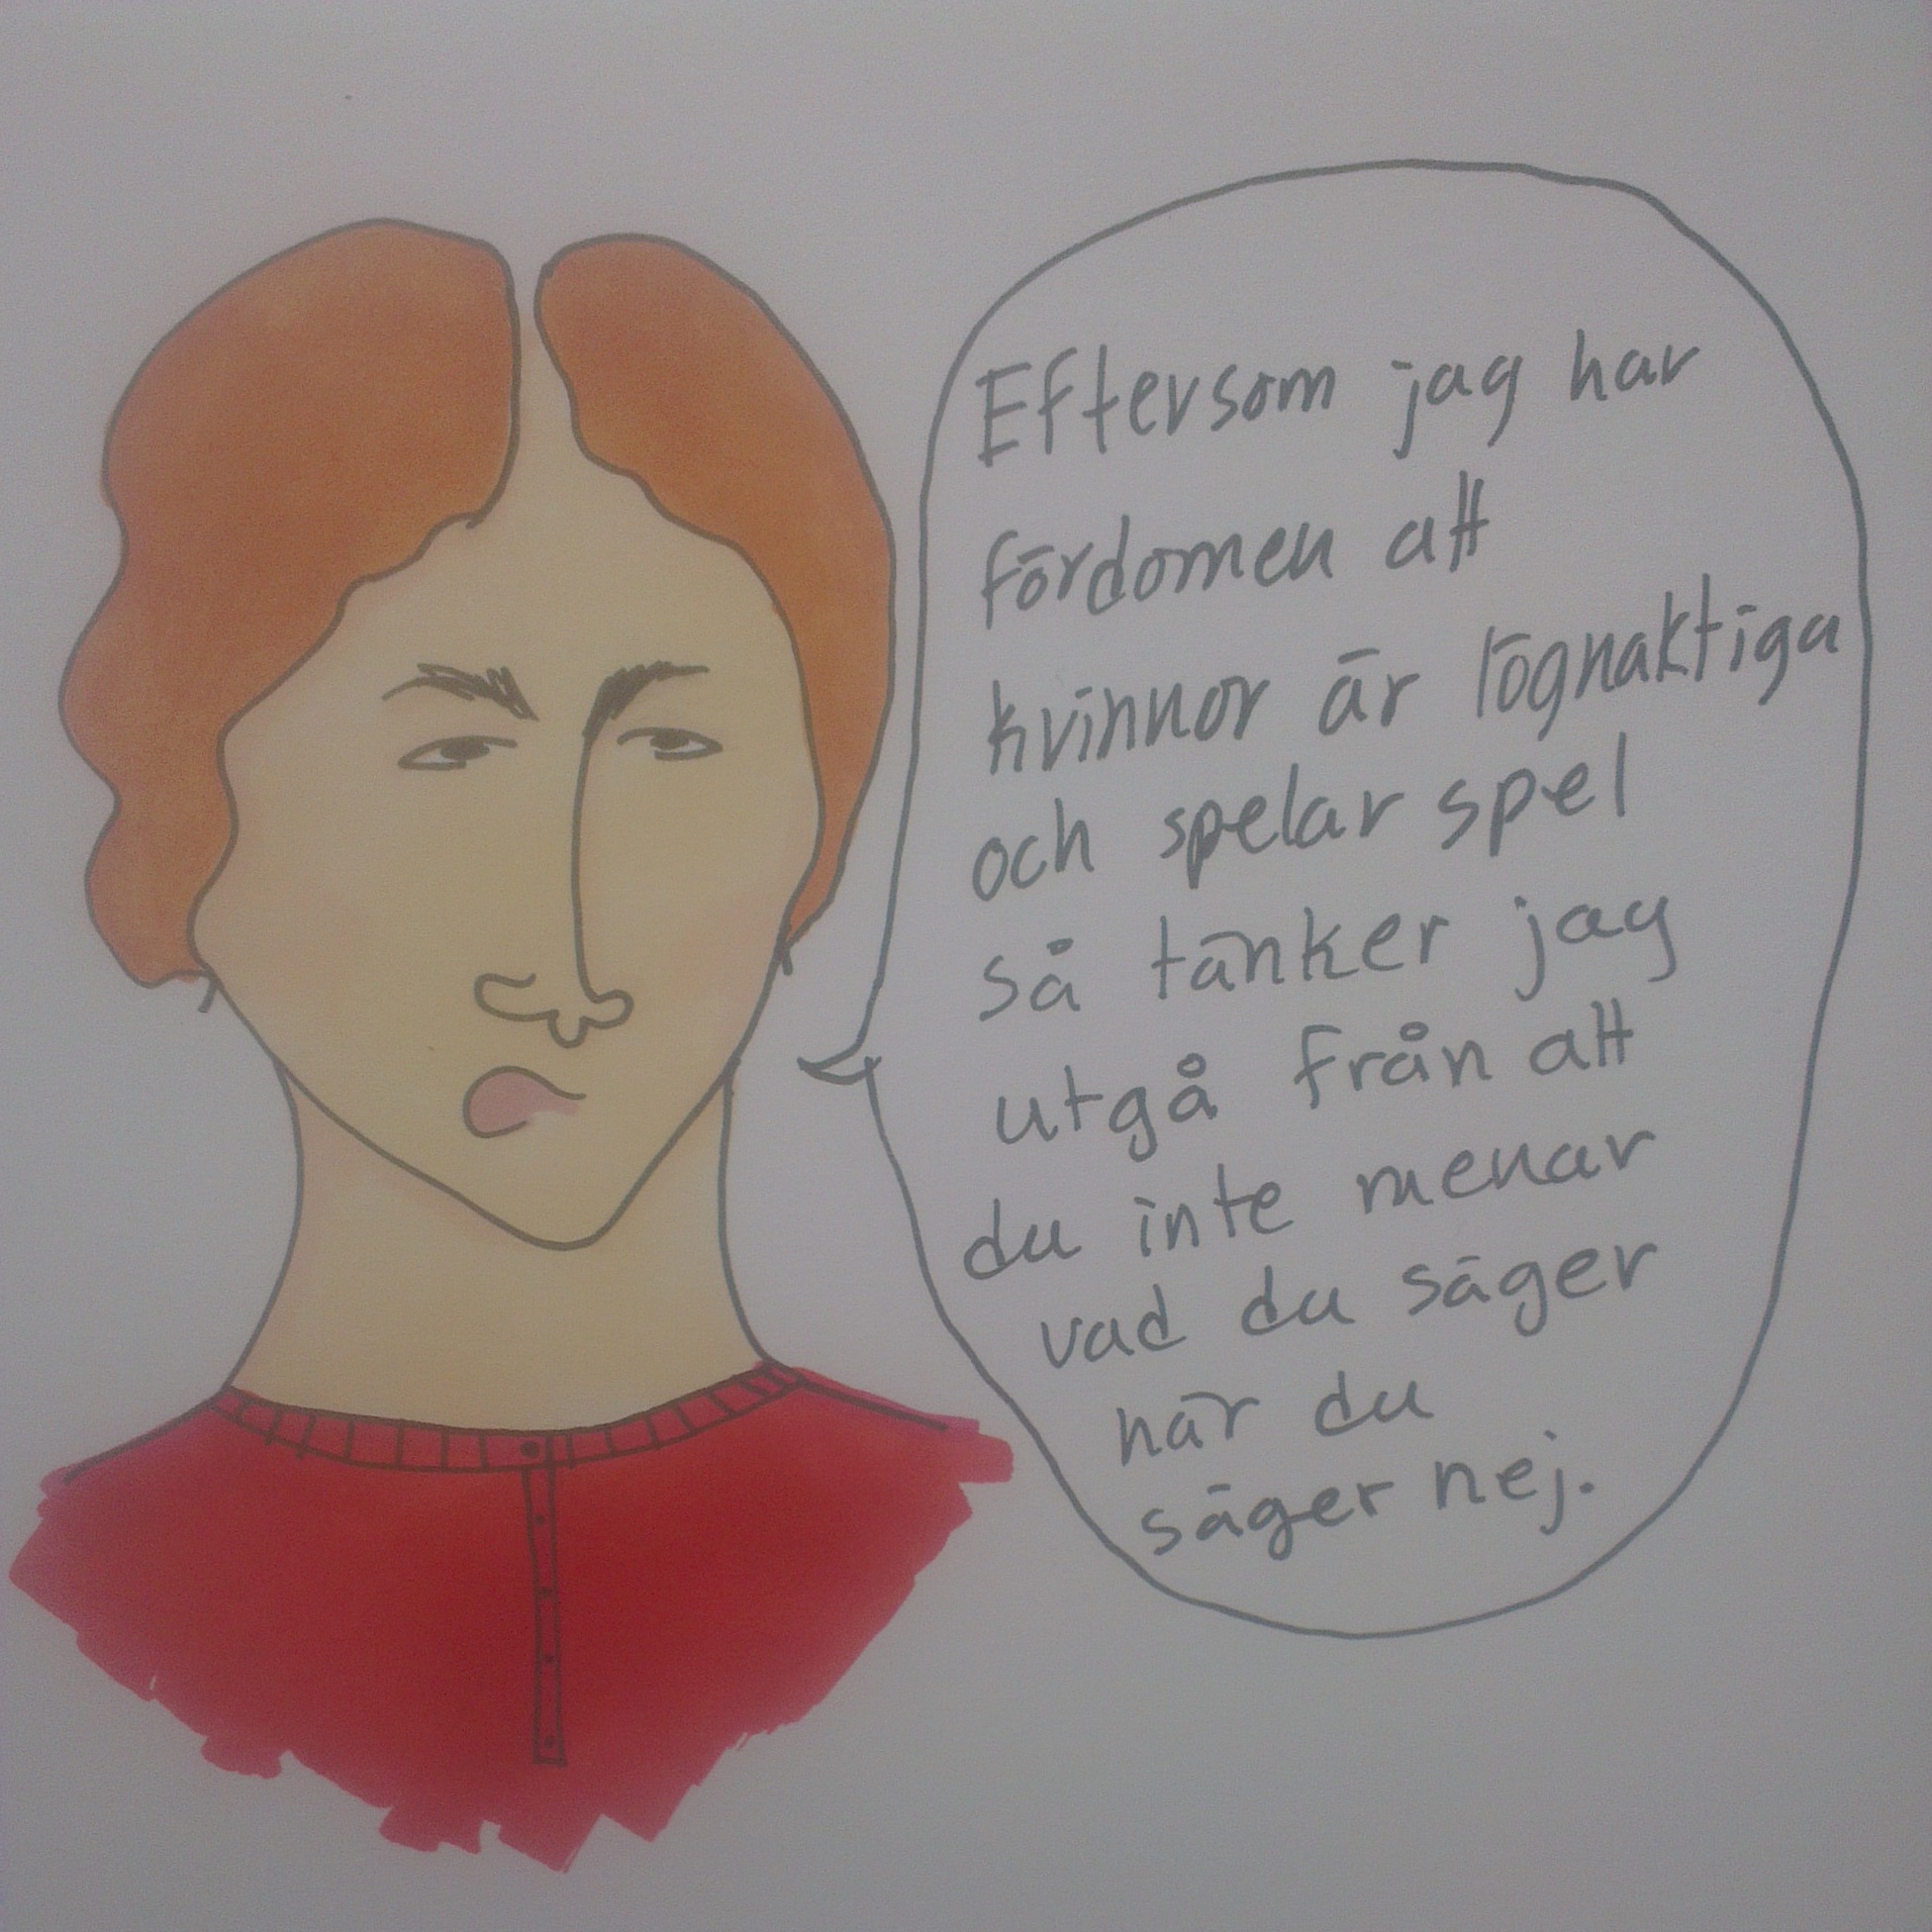 Eftersom jag har
fördomen att
kvinnor är lögnaktiga
och spelar spel
så tänker jag
utgå från att
du inte menar
vad du säger
när du
säger nej.